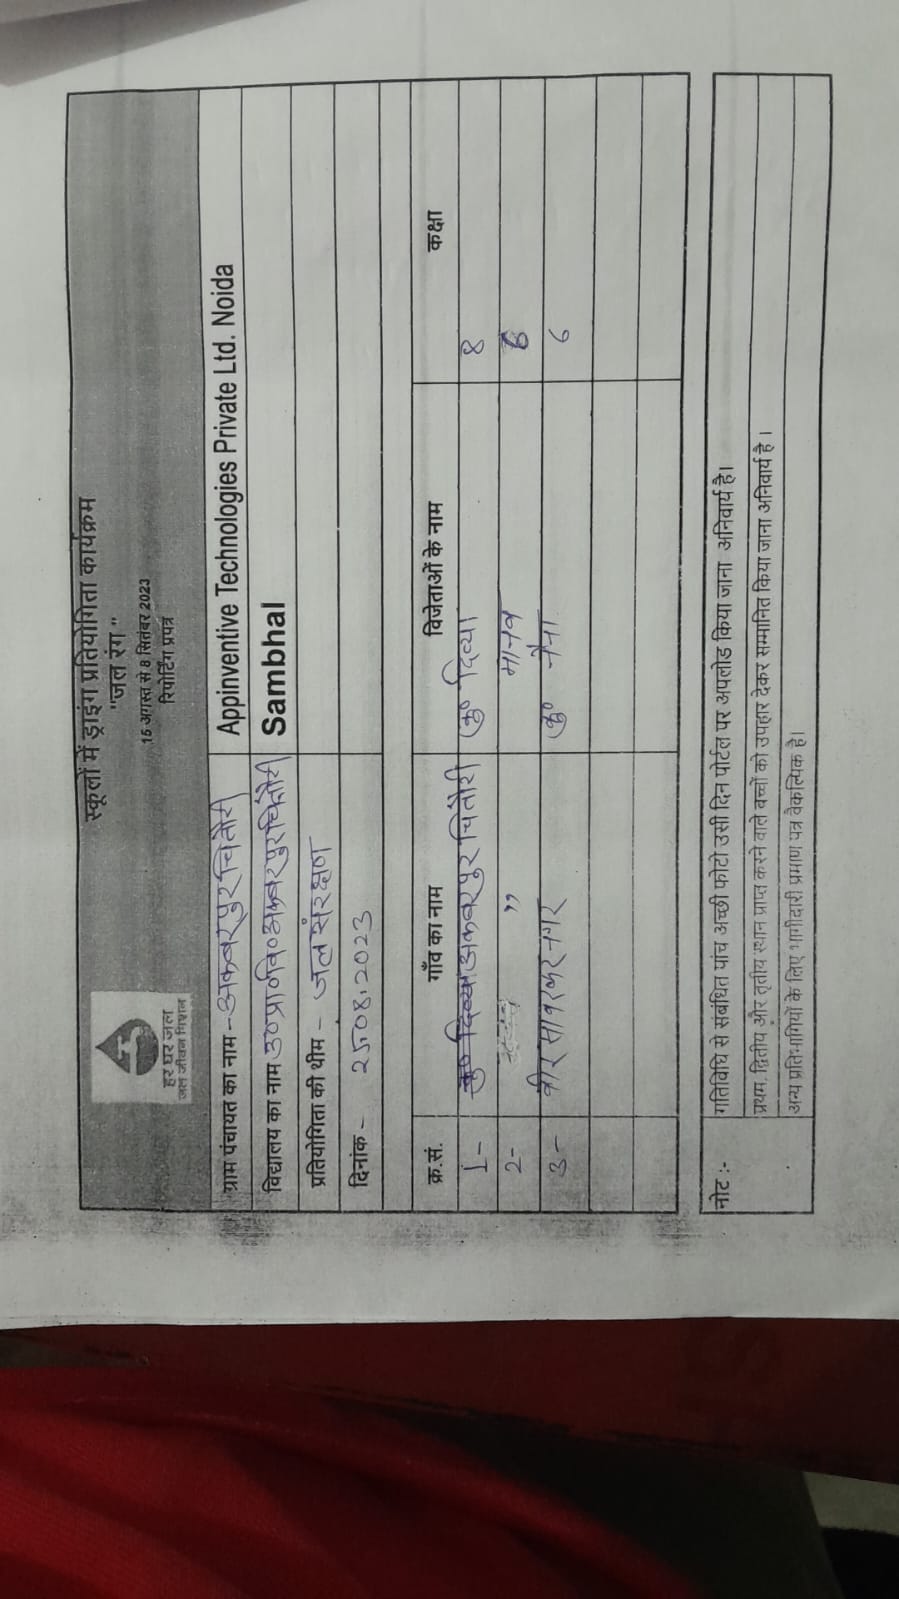 स्कूलों में ड्राइंग प्रतियोगिता कार्यक्रम
"जल रंग"
15 अगस्त से 8 सितंबर 2023
रिपोर्टिंग प्रपत्र
हर घर जल
जल जीवन मिशन
ग्राम पंचायत का नाम - अकबरपुर चितौरी Appinventive Technologies Private Ltd. Noida
विद्यालय का नाम उ०प्रा०वि० अकबरपुर चितौरी Sambhal
प्रतियोगिता की थीम - जल संरक्षण
दिनांक - 25.08.2023
क्र.सं. गाँव का नाम विजेताओं के नाम कक्षा
1- कु० दिव्या अकबरपुर चितौरी कु० दिव्या 8
2- " मानव 6
3- वीर सावरकर नगर कु० नैना 6
नोट :- गतिविधि से संबंधित पांच अच्छी फोटो उसी दिन पोर्टल पर अपलोड किया जाना अनिवार्य है।
प्रथम, द्वितीय और तृतीय स्थान प्राप्त करने वाले बच्चों को उपहार देकर सम्मानित किया जाना अनिवार्य है।
अन्य प्रतिभागियों के लिए भागीदारी प्रमाण पत्र वैकल्पिक है।